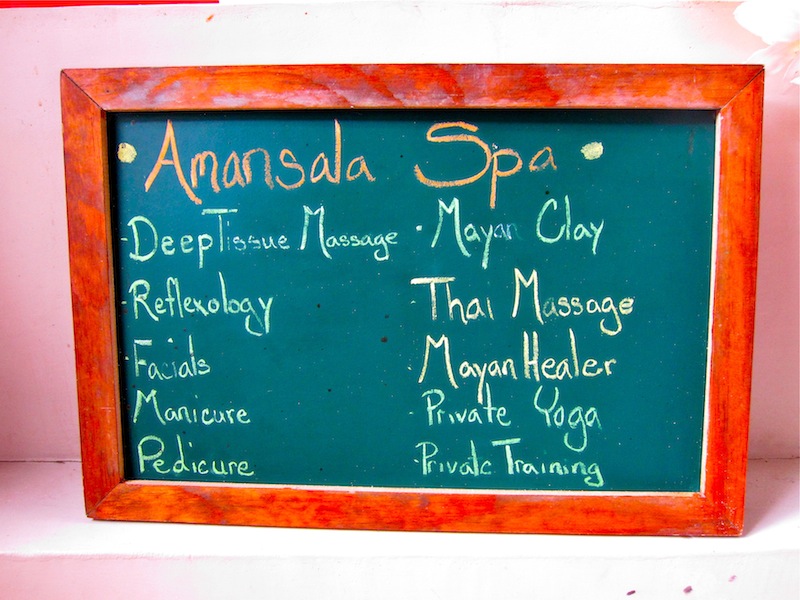 Amansala Spa
- Deep Tissue Massage
- Reflexology
- Facials
- Manicure
- Pedicure
· Mayan Clay
Thai Massage
- Mayan Healer
- Private Yoga
- Private Training